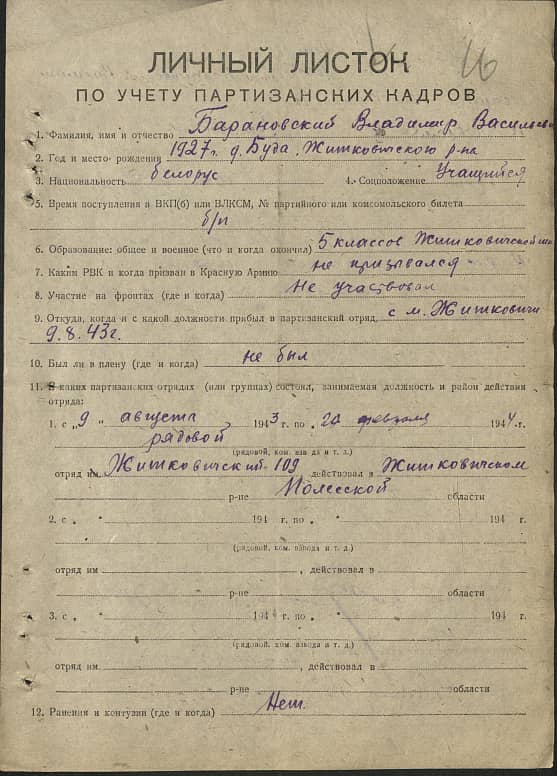 16
ЛИЧНЫЙ ЛИСТОК
ПО УЧЕТУ ПАРТИЗАНСКИХ КАДРОВ
1. Фамилия, имя и отчество Барановский Владимир Василье
2. Год и место рождения 1927г. д. Буда, Житковичского р-на
3. Национальность белорус 4. Соцположение Учащийся
5. Время поступления в ВКП(б) или ВЛКСМ, № партийного или комсомольского билета
б/п
6. Образование: общее и военное (что и когда окончил) 5 классов Житковичской
7. Каким РВК и когда призван в Красную Армию не призывался
8. Участие на фронтах (где и когда) Не участвовал
9. Откуда, когда и с какой должности прибыл в партизанский отряд, с м. Житковичи
9.8.43г.
10. Был ли в плену (где и когда) не был
11. В каких партизанских отрядах (или группах) состоял, занимаемая должность и район действия
отряда:
1. с „9 „ августа 1943 г. по „ 20 февраля 1944 г.
рядовой
(рядовой, ком. взвода и т. д.)
отряд им. Житковичский 109 действовал в Житковичском
р-не Полесской области
2. с „ “ 194 г. по „ “ 194 г.
(рядовой, ком. взвода и т. д.)
отряд им. , действовал в
р-не области
3. с „ “ 194 г. по „ “ 194 г.
(рядовой, ком. взвода и т. д.)
отряд им. , действовал в
р-не области
12. Ранения и контузии (где и когда) Нет.